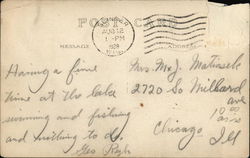 POST CARD
AUG 12
1 - PM
1929
MESSAGE
ADDRESS
Having a fine
time at the lake
swimming and fishing
and nothing to do.
Geo
Mrs. M. J.
2720 So Millard
ave
Chicago
Ill